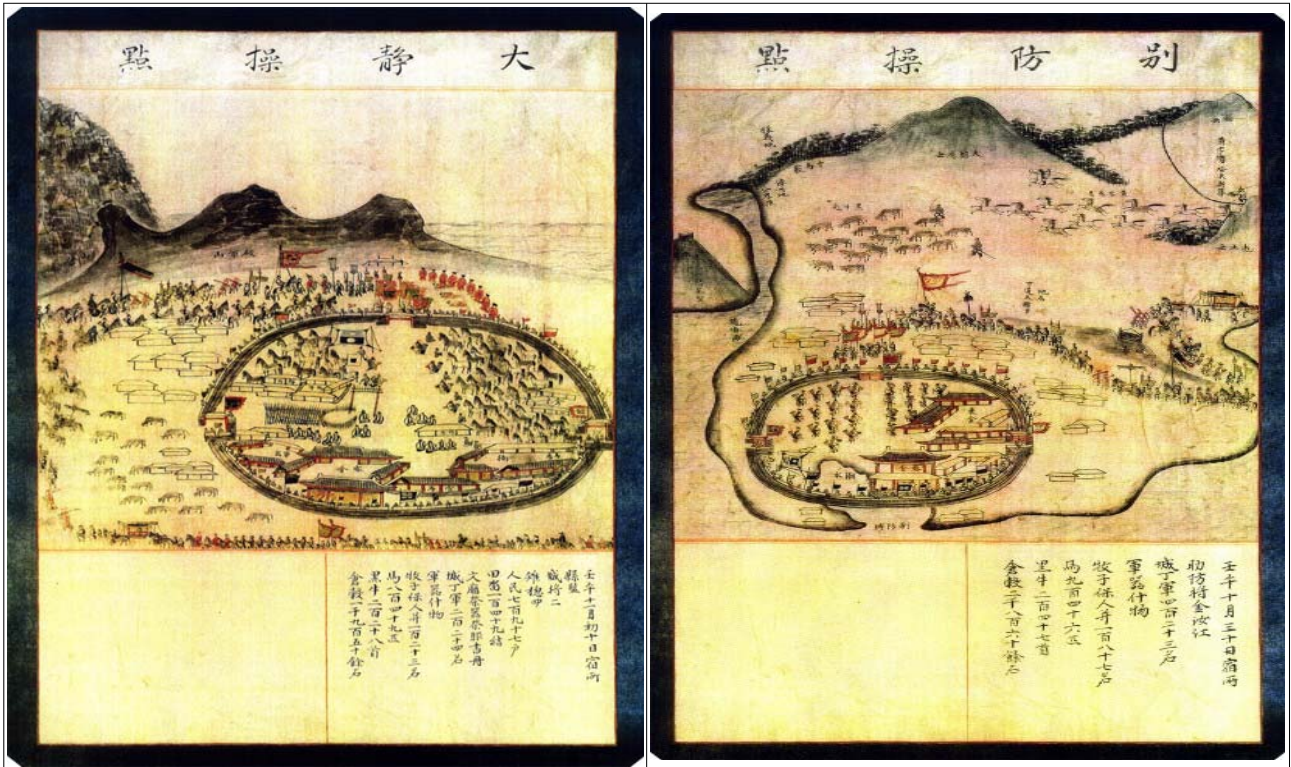 大靜操點
壬午十一月初十日宿所
縣監
城將二
雉總四
人民七百九十七戶
田畓一百四十九結
文廟祭器祭服書冊
城丁軍二百二十四名
軍器什物
牧子保人幷一百二十三名
馬八百四十九匹
黑牛二百二十八首
倉穀一千九百五十餘石
別防操點
別防城
壬午十月三十日宿所
助防將金汝江
城丁軍四百二十三名
軍器什物
牧子保人幷一百八十七名
馬九百四十六匹
黑牛二百四十七首
倉穀二千八百六十餘石